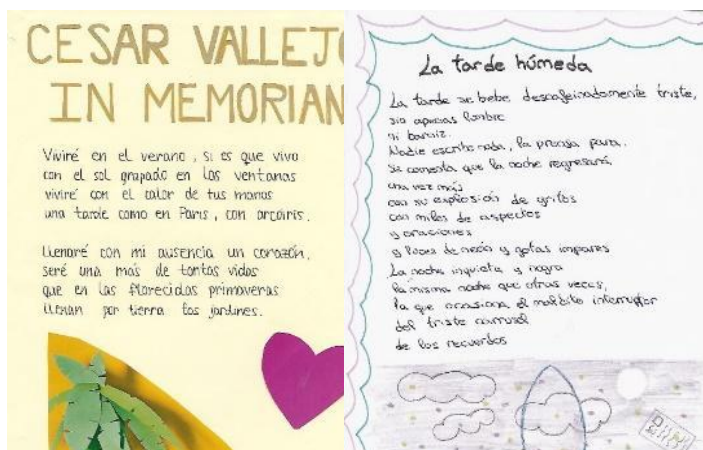 CESAR VALLEJO
IN MEMORIAN
Viviré en el verano, si es que vivo
con el sol grapado en las ventanas
viviré con el calor de tus manos
una tarde como en Paris, con arcoiris.
Llenaré con mi ausencia un corazón,
seré una más de tantas vidas
que en las florecidas primaveras
llenan por tierra los jardines.
La tarde húmeda
La tarde se bebe descafeinadamente triste,
sin apenas lumbre
ni barniz.
Nadie escribe nada, la prensa para.
Se comenta que la noche regresará,
una vez más
con su explosión de grifos
con miles de aspectos
y oraciones
y luces de neón y gotas impares
La noche inquieta y negra
la misma noche que otras veces,
la que ocasiona el maldito interruptor
del triste carrusel
de los recuerdos